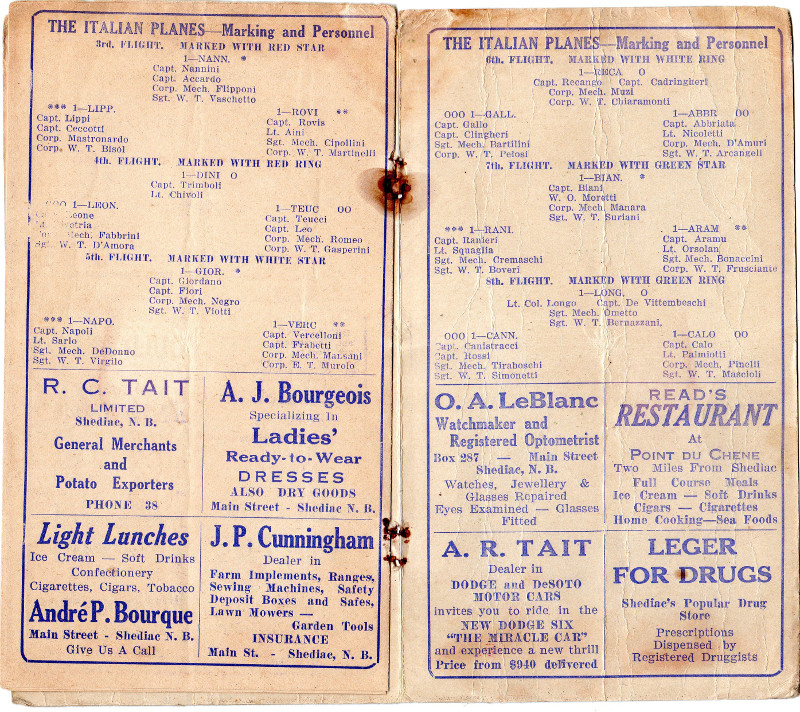 THE ITALIAN PLANES—Marking and Personnel
3rd. FLIGHT. MARKED WITH RED STAR
1—NANN. *
Capt. Nannini
Capt. Accardo
Corp. Mech. Flipponi
Sgt. W. T. Vaschetto
*** 1—LIPP.
Capt. Lippi
Capt. Ceccotti
Corp. Mastronardo
Corp. W. T. Bisol
1—ROVI **
Capt. Rovis
Lt. Aini
Sgt. Mech. Cipollini
Corp. W. T. Martinelli
4th. FLIGHT. MARKED WITH RED RING
1—DINI O
Capt. Trimboli
Lt. Chivoli
OOO 1—LEON.
eone
Mech. Fabbrini
Sgt. W. T. D'Amora
1—TEUC OO
Capt. Teucci
Capt. Leo
Corp. Mech. Romeo
Corp. W. T. Gasperini
5th. FLIGHT. MARKED WITH WHITE STAR
1—GIOR. *
Capt. Giordano
Capt. Fiori
Corp. Mech. Negro
Sgt. W. T. Viotti
*** 1—NAPO.
Capt. Napoli
Lt. Sarlo
Sgt. Mech. DeDonno
Sgt. W. T. Virgilo
1—VERC **
Capt. Vercelloni
Capt. Frabetti
Corp. Mech. Matsani
Corp. E. T. Murolo
R. C. TAIT
LIMITED
Shediac, N. B.
General Merchants
and
Potato Exporters
PHONE 38
A. J. Bourgeois
Specializing In
Ladies'
Ready-to-Wear
DRESSES
ALSO DRY GOODS
Main Street - Shediac, N. B.
Light Lunches
Ice Cream — Soft Drinks
Confectionery
Cigarettes, Cigars, Tobacco
André P. Bourque
Main Street - Shediac N. B.
Give Us A Call
J. P. Cunningham
Dealer in
Farm Implements, Ranges,
Sewing Machines, Safety
Deposit Boxes and Safes,
Lawn Mowers —
Garden Tools
INSURANCE
Main St. - Shediac, N. B.
THE ITALIAN PLANES—Marking and Personnel
6th. FLIGHT. MARKED WITH WHITE RING
1—RECA O
Capt. Recango Capt. Cadringheri
Corp. Mech. Muzi
Corp. W. T. Chiaramonti
OOO 1—GALL.
Capt. Gallo
Capt. Clingheri
Sgt. Mech. Bartilini
Corp. W. T. Pelosi
1—ABBR OO
Capt. Abbriata
Lt. Nicoletti
Corp. Mech. D'Amuri
Sgt. W. T. Arcangeli
7th. FLIGHT. MARKED WITH GREEN STAR
1—BIAN. *
Capt. Biani
W. O. Moretti
Corp. Mech. Manara
Sgt. W. T. Suriani
*** 1—RANI.
Capt. Ranieri
Lt. Squaglia
Sgt. Mech. Cremaschi
Sgt. W. T. Boveri
1—ARAM **
Capt. Aramu
Lt. Orsolan
Sgt. Mech. Bonaccini
Corp. W. T. Frusciante
8th. FLIGHT. MARKED WITH GREEN RING
1—LONG, O
Lt. Col. Longo Capt. De Vittembeschi
Sgt. Mech. Ometto
Sgt. W. T. Bernazzani,
OOO 1—CANN.
Capt. Caniatracci
Capt. Rossi
Sgt. Mech. Tiraboschi
Sgt. W. T. Simonetti
1—CALO OO
Capt. Calo
Lt. Palmiotti
Corp. Mech. Pinelli
Sgt. W. T. Mascioli
O. A. LeBlanc
Watchmaker and
Registered Optometrist
Box 287 — Main Street
Shediac, N. B.
Watches, Jewellery &
Glasses Repaired
Eyes Examined — Glasses
Fitted
READ'S
RESTAURANT
At
POINT DU CHENE
Two Miles From Shediac
Full Course Meals
Ice Cream — Soft Drinks
Cigars — Cigarettes
Home Cooking—Sea Foods
A. R. TAIT
Dealer in
DODGE and DeSOTO
MOTOR CARS
invites you to ride in the
NEW DODGE SIX
"THE MIRACLE CAR"
and experience a new thrill
Price from $940 delivered
LEGER
FOR DRUGS
Shediac's Popular Drug
Store
Prescriptions
Dispensed by
Registered Druggists